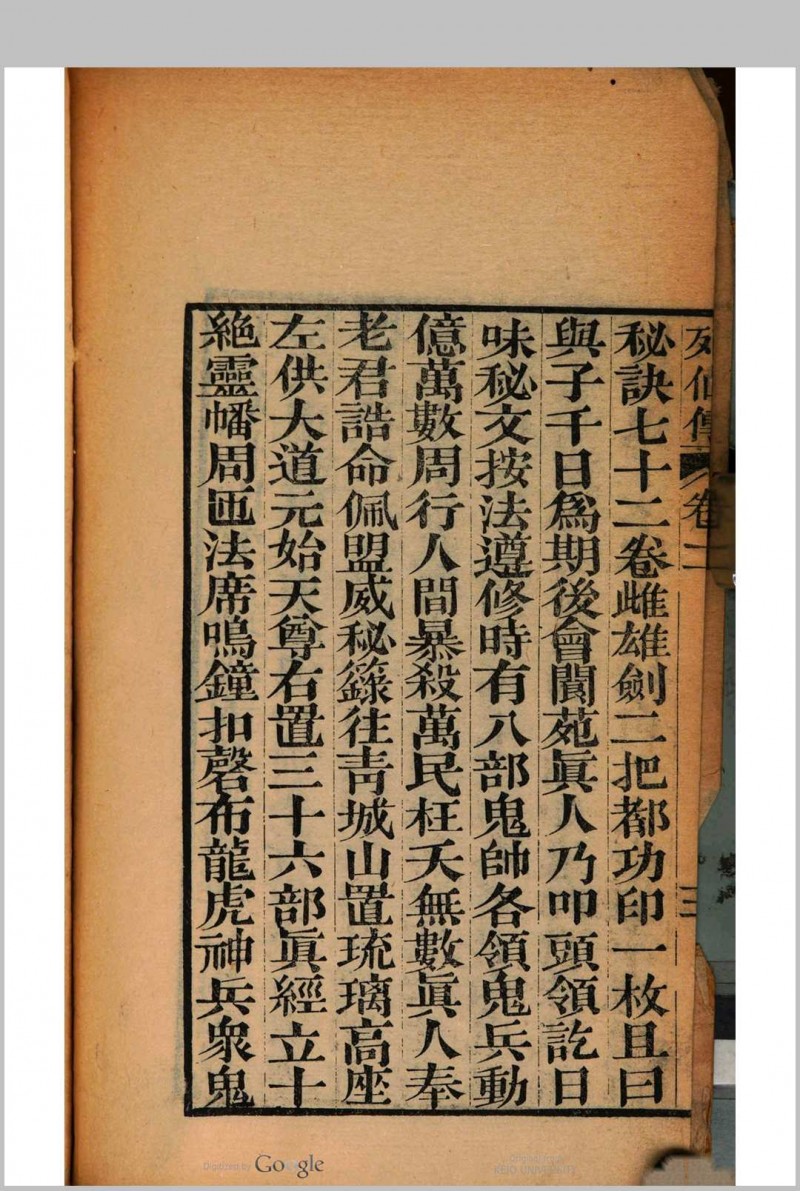 列仙傳 卷二 三
秘訣七十二卷雌雄劍二把都功印一枚且曰
與子千日爲期後會閬苑眞人乃叩頭領訖日
味秘文按法遵修時有八部鬼帥各領鬼兵動
億萬數周行人間暴殺萬民枉夭無數眞人奉
老君誥命佩盟威秘籙往靑城山置琉璃高座
左供大道元始天尊右置三十六部眞經立十
絶靈幡周匝法席鳴鐘扣磬布龍虎神兵衆鬼
Digitized by Google
Original from
KEIO UNIVERSITY